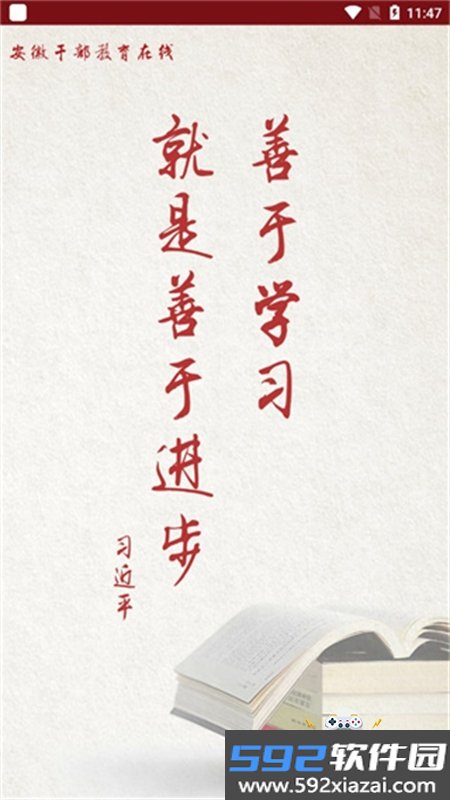 11:47
安徽干部教育在线
善于学习
就是善于进步
习近平
592软件园
www.592xiazai.com